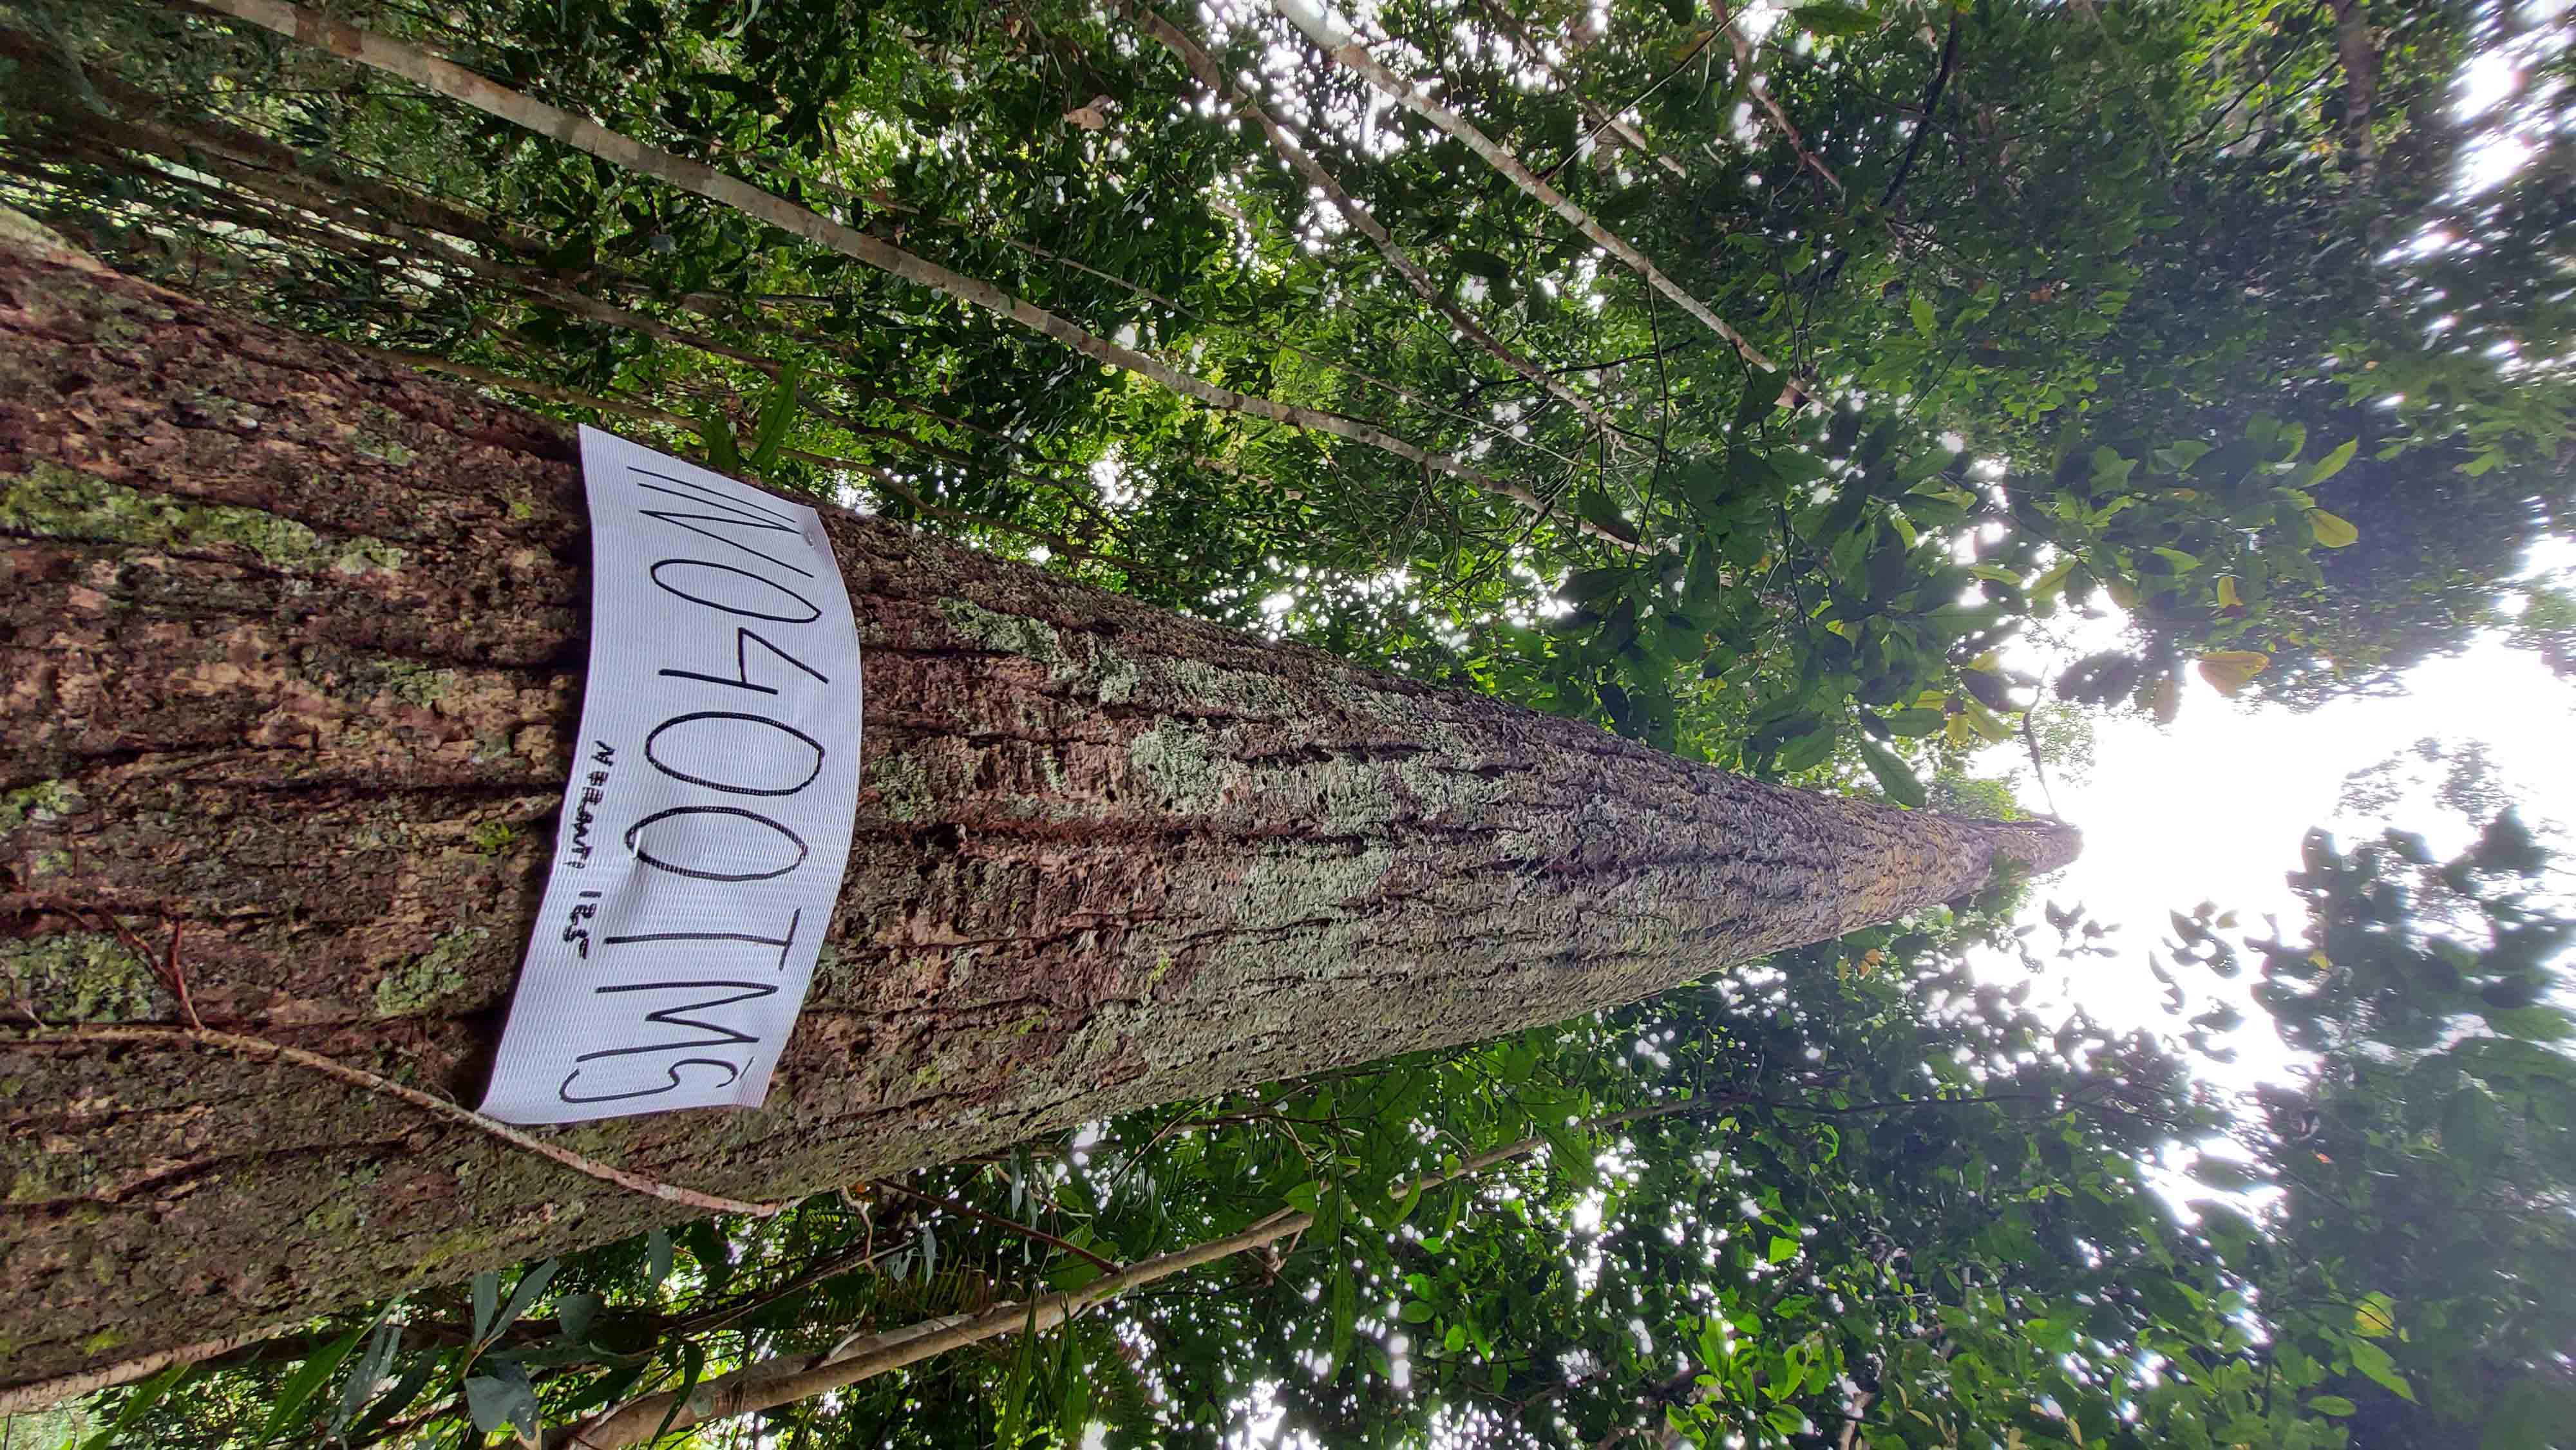 INO400TMS
MERANTI 125